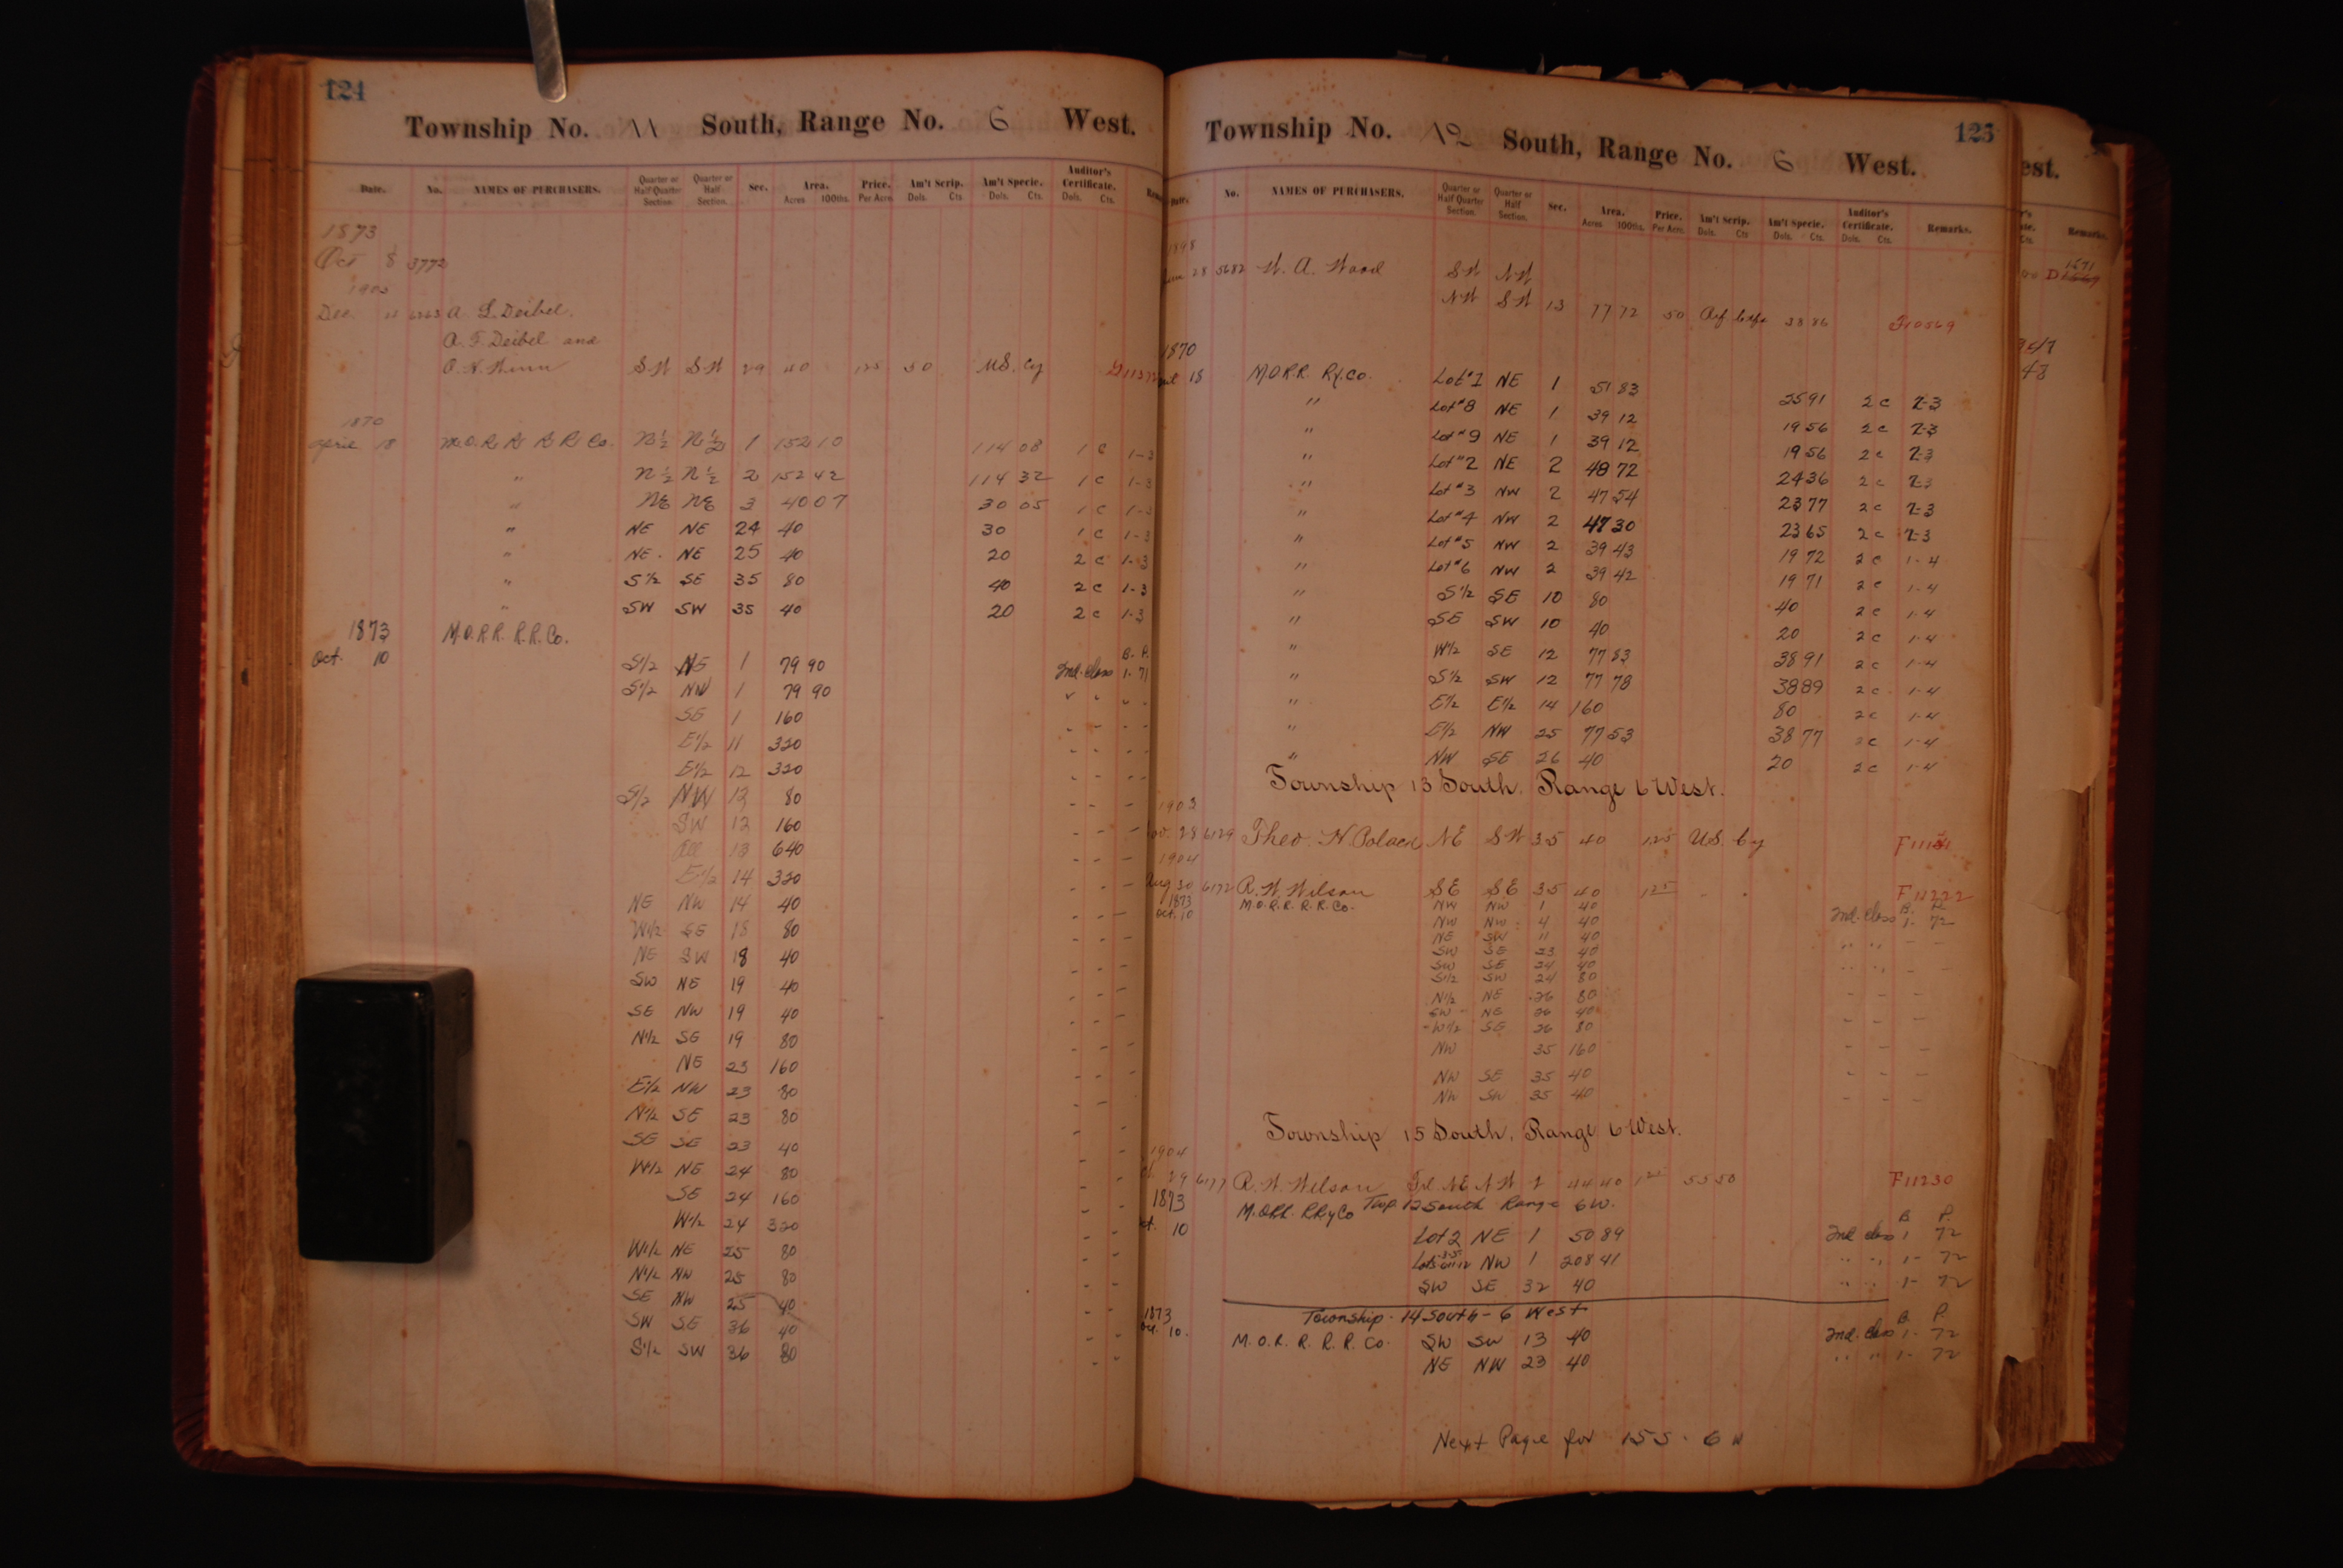 124
Township No. 11 South, Range No. 6 West.
Date. No. NAMES OF PURCHASERS. Quarter or Half Quarter Section. Quarter or Half Section. Sec. Area. Acres 100ths. Price. Per Acre. Am't Scrip. Dols. Cts. Am't Specie. Dols. Cts. Auditor's Certificate. Dols. Cts.
1873
Oct 8 3772
1905
Dec A. L. Deibel.
A. F. Deibel and
SW SW 29 40 125 50 US. Cy
1870
April 18 M.O.R.R. R.R. Co. N½ N½ 1 152 10 114 08 1 c 1-3
" N½ N½ 2 152 42 114 32 1 c 1-3
" NE NE 3 40 07 30 05 1 c 1-3
" NE NE 24 40 30 1 c 1-3
" NE NE 25 40 20 2 c 1-3
" S½ SE 35 80 40 2 c 1-3
" SW SW 35 40 20 2 c 1-3
1873 M.O.R.R. R.R. Co.
Oct. 10 B. P.
S½ NE 1 79 90 2nd. Class 1-71
S½ NW 1 79 90
SE 1 160
E½ 11 320
E½ 12 320
S½ NW 12 80
SW 12 160
All 13 640
E½ 14 320
NE NW 14 40
W½ SE 18 80
NE SW 18 40
SW NE 19 40
SE NW 19 40
N½ SE 19 80
NE 23 160
E½ NW 23 80
N½ SE 23 80
SE SE 23 40
W½ NE 24 80
SE 24 160
W½ 24 320
W½ NE 25 80
N½ NW 25 80
SE NW 25 40
SW SE 36 40
S½ SW 36 80
125
Township No. 12 South, Range No. 6 West.
Date. No. NAMES OF PURCHASERS. Quarter or Half Quarter Section. Quarter or Half Section. Sec. Area. Acres 100ths. Price. Per Acre. Am't Scrip. Dols. Cts Am't Specie. Dols. Cts. Auditor's Certificate. Dols. Cts. Remarks.
1898
28 5682 W. A. Wood SW NW
NW SW 13 77 72 50 38 86 F10569
1870
18 M.O.R.R. Ry. Co. Lot #1 NE 1 51 83 25 91 2 c 2-3
" Lot #8 NE 1 39 12 19 56 2 c 2-3
" Lot #9 NE 1 39 12 19 56 2 c 2-3
" Lot #2 NE 2 48 72 24 36 2 c 2-3
" Lot #3 NW 2 47 54 23 77 2 c 2-3
" Lot #4 NW 2 47 30 23 65 2 c 2-3
" Lot #5 NW 2 39 43 19 72 2 c 1-4
" Lot #6 NW 2 39 42 19 71 2 c 1-4
" S½ SE 10 80 40 2 c 1-4
" SE SW 10 40 20 2 c 1-4
" W½ SE 12 77 83 38 91 2 c 1-4
" S½ SW 12 77 78 38 89 2 c 1-4
" E½ E½ 14 160 80 2 c 1-4
" E½ NW 25 77 53 38 77 2 c 1-4
" NW SE 26 40 20 2 c 1-4
Township 13 South. Range 6 West.
1903
28 6129 Theo. N. Polack NE SW 35 40 125 US. Cy
1904
Aug 30 6172 R. W. Wilson SE SE 35 40 125 F11222
1873
Oct. 10 M.O.R.R. R.R. Co. NW NW 1 40 B. P.
NW NW 4 40 2nd. Class 1-72
NE SW 11 40
SW SE 23 40
SW SE 24 40
S½ SW 24 80
N½ NE 26 80
SW NE 26 40
W½ SE 26 80
NW 35 160
NW SE 35 40
NW SW 35 40
Township 15 South, Range 6 West.
1904
29 6177 R. W. Wilson NE NW 1 44 40 125 55 50 F11230
1873 M.O.R.R. R.Ry Co Twp. 12 South Range 6 W.
Oct. 10 B. P.
Lot 2 NE 1 50 89 2nd class 1 72
NW 1 208 41 " " 1- 72
SW SE 32 40 " " 1- 72
1873 Township - 14 South - 6 West B. P.
Oct. 10. M.O.R.R. R.R. Co. SW SW 13 40 2nd. class 1- 72
NE NW 23 40 " " 1- 72
Next Page for 15 S. 6 W
est.
Remarks.
1671